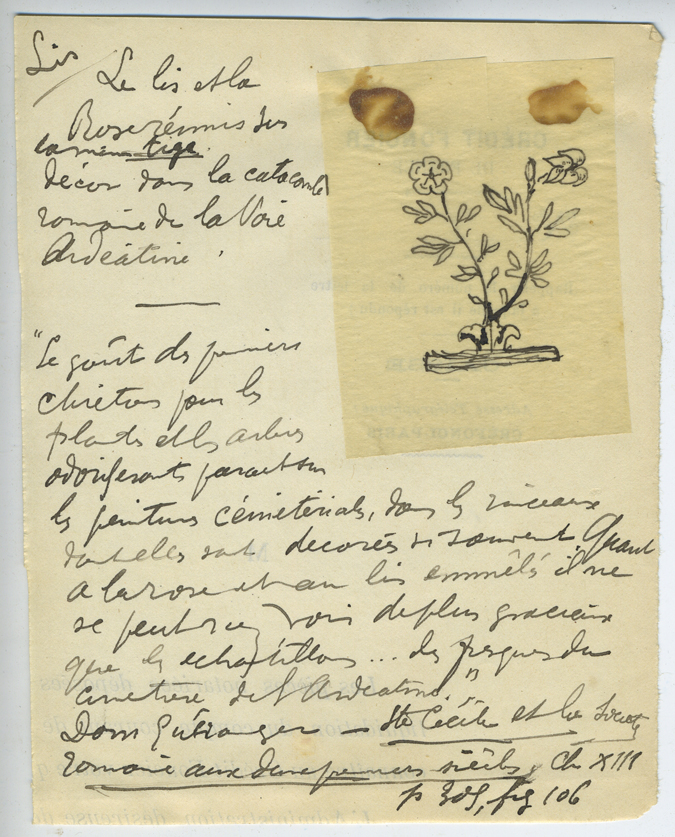 Lis
Le lis et la
Rose réunis sur
la même tige
décor dans la catacombe
romaine de la Voie
Ardéatine.
"Le goût des premiers
chrétiens pour les
plantes et les arbres
odoriferants parait sur
les peintures cémétériales, dans les rinceaux
dont elles sont decorés si souvent. Quant
a la rose et au lis emmêlés il ne
se peut rien voir de plus gracieux
que les echantillons... des fresques du
cimetière de l'Ardéatine."
Dom Guéranger — Ste Cécile et la Société
romaine aux deux premiers siècles, ch XIII
p 305, fig 106